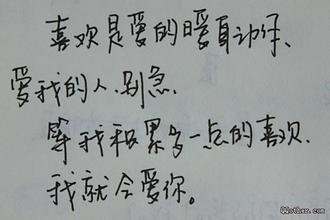 喜欢是爱的暖身动作、
爱我的人.别急.
等我积累多一点的喜欢.
我就会爱你。
QQtbao.com